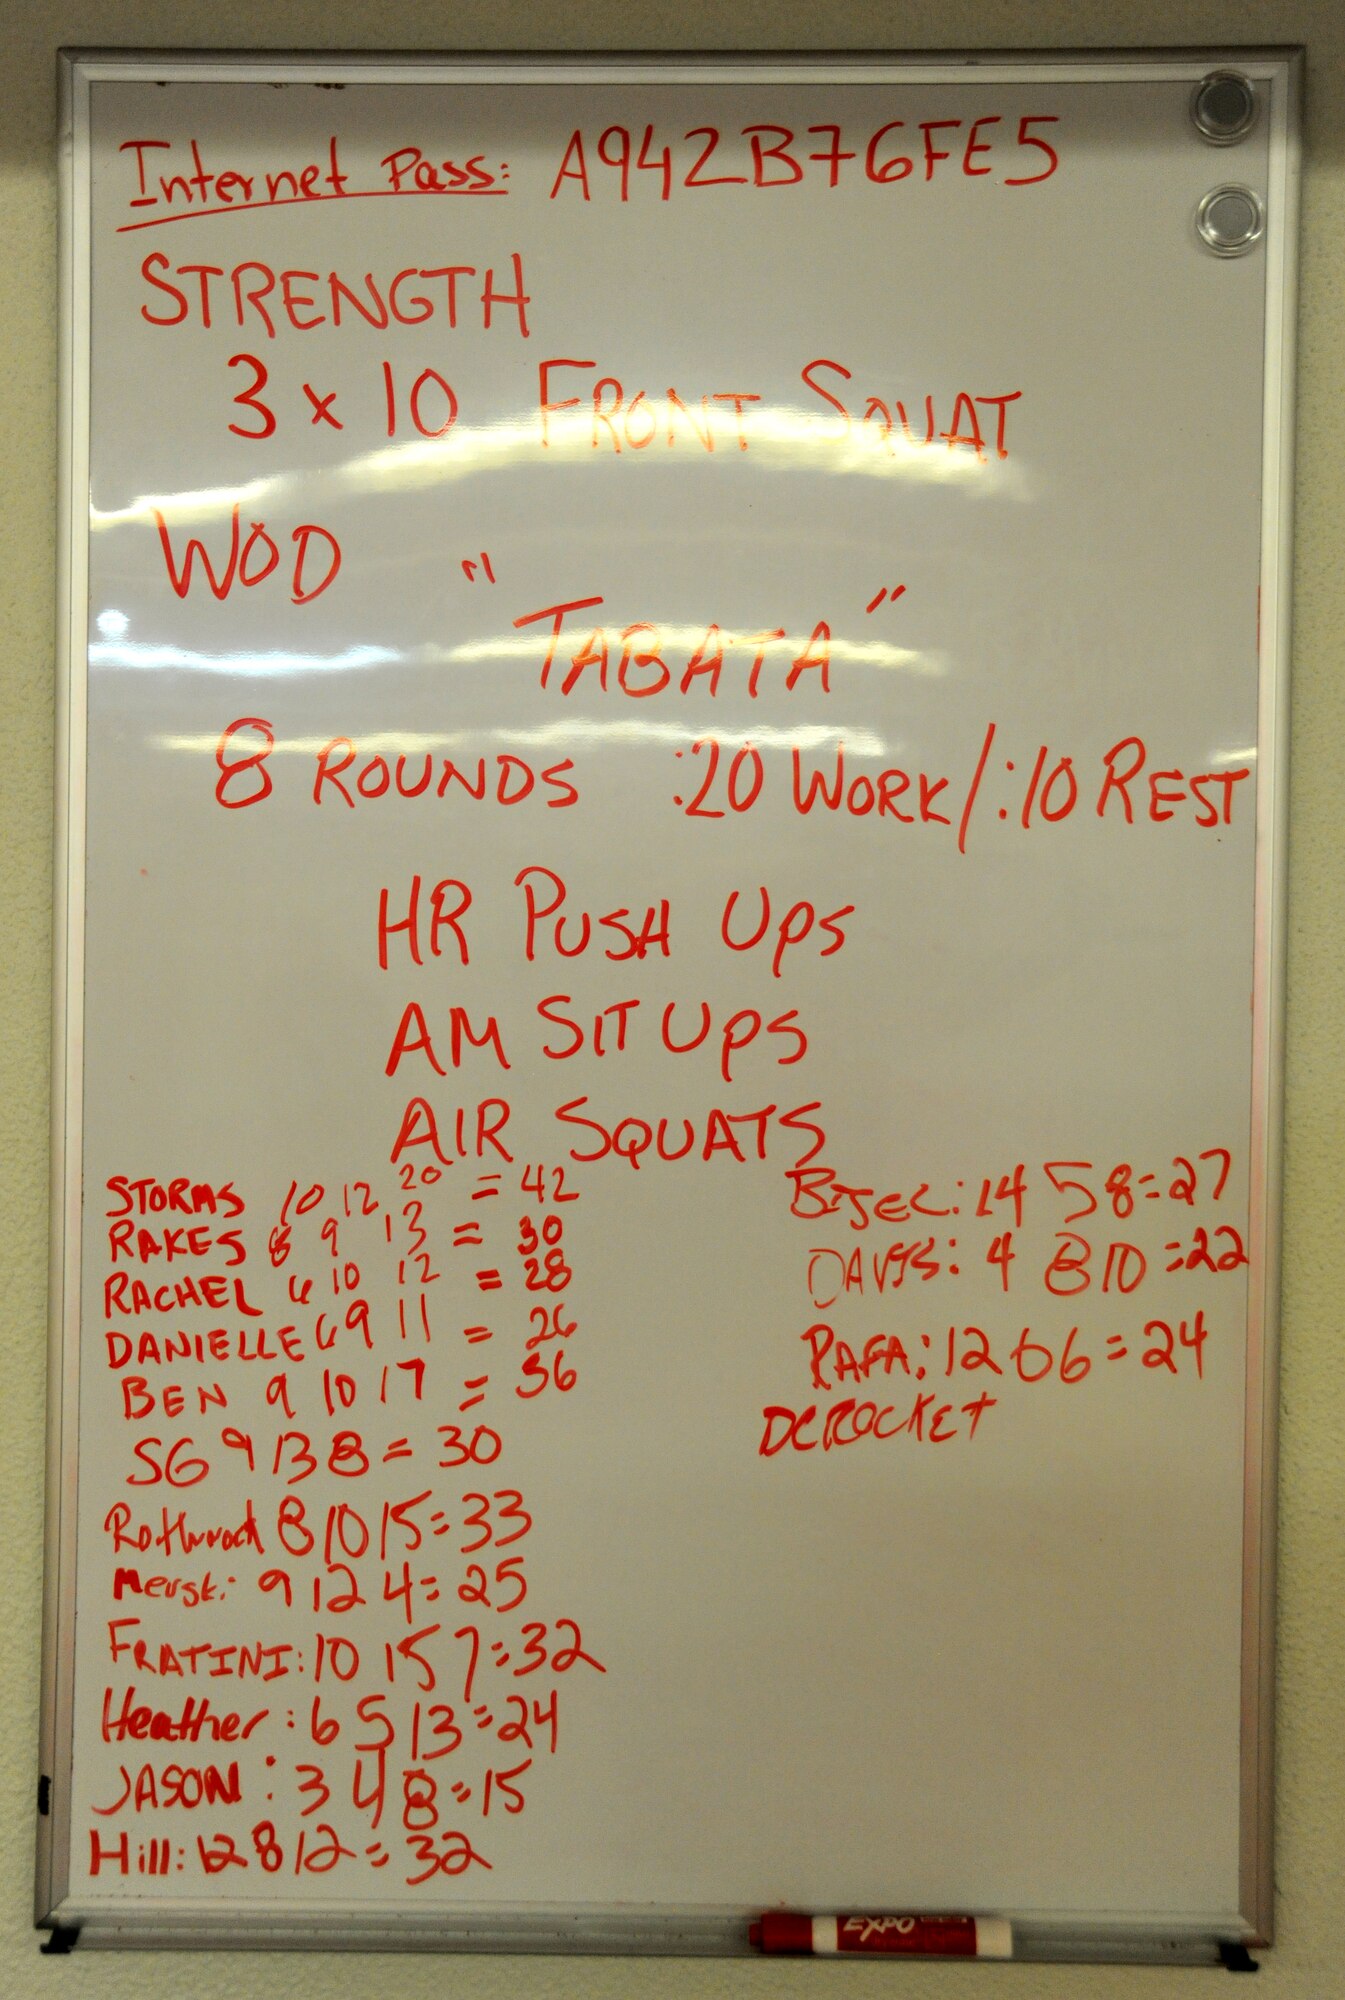 Internet Pass: A942B76FE5
STRENGTH
3 x 10 FRONT SQUAT
WOD
"TABATA"
8 ROUNDS :20 WORK/:10 REST
HR PUSH UPS
AM SIT UPS
AIR SQUATS
STORMS 10 12 20 = 42
RAKES 8 9 13 = 30
RACHEL 6 10 12 = 28
DANIELLE 6 9 11 = 26
BEN 9 10 17 = 36
SG 9 13 8 = 30
Rothrock 8 10 15 = 33
9 12 4 = 25
FRATINI: 10 15 7 = 32
Heather: 6 5 13 = 24
JASON: 3 4 8 = 15
Hill: 12 8 12 = 32
14 5 8 = 27
DAVIS: 4 8 10 = 22
RAFA: 12 6 6 = 24
DCROCKET
EXPO